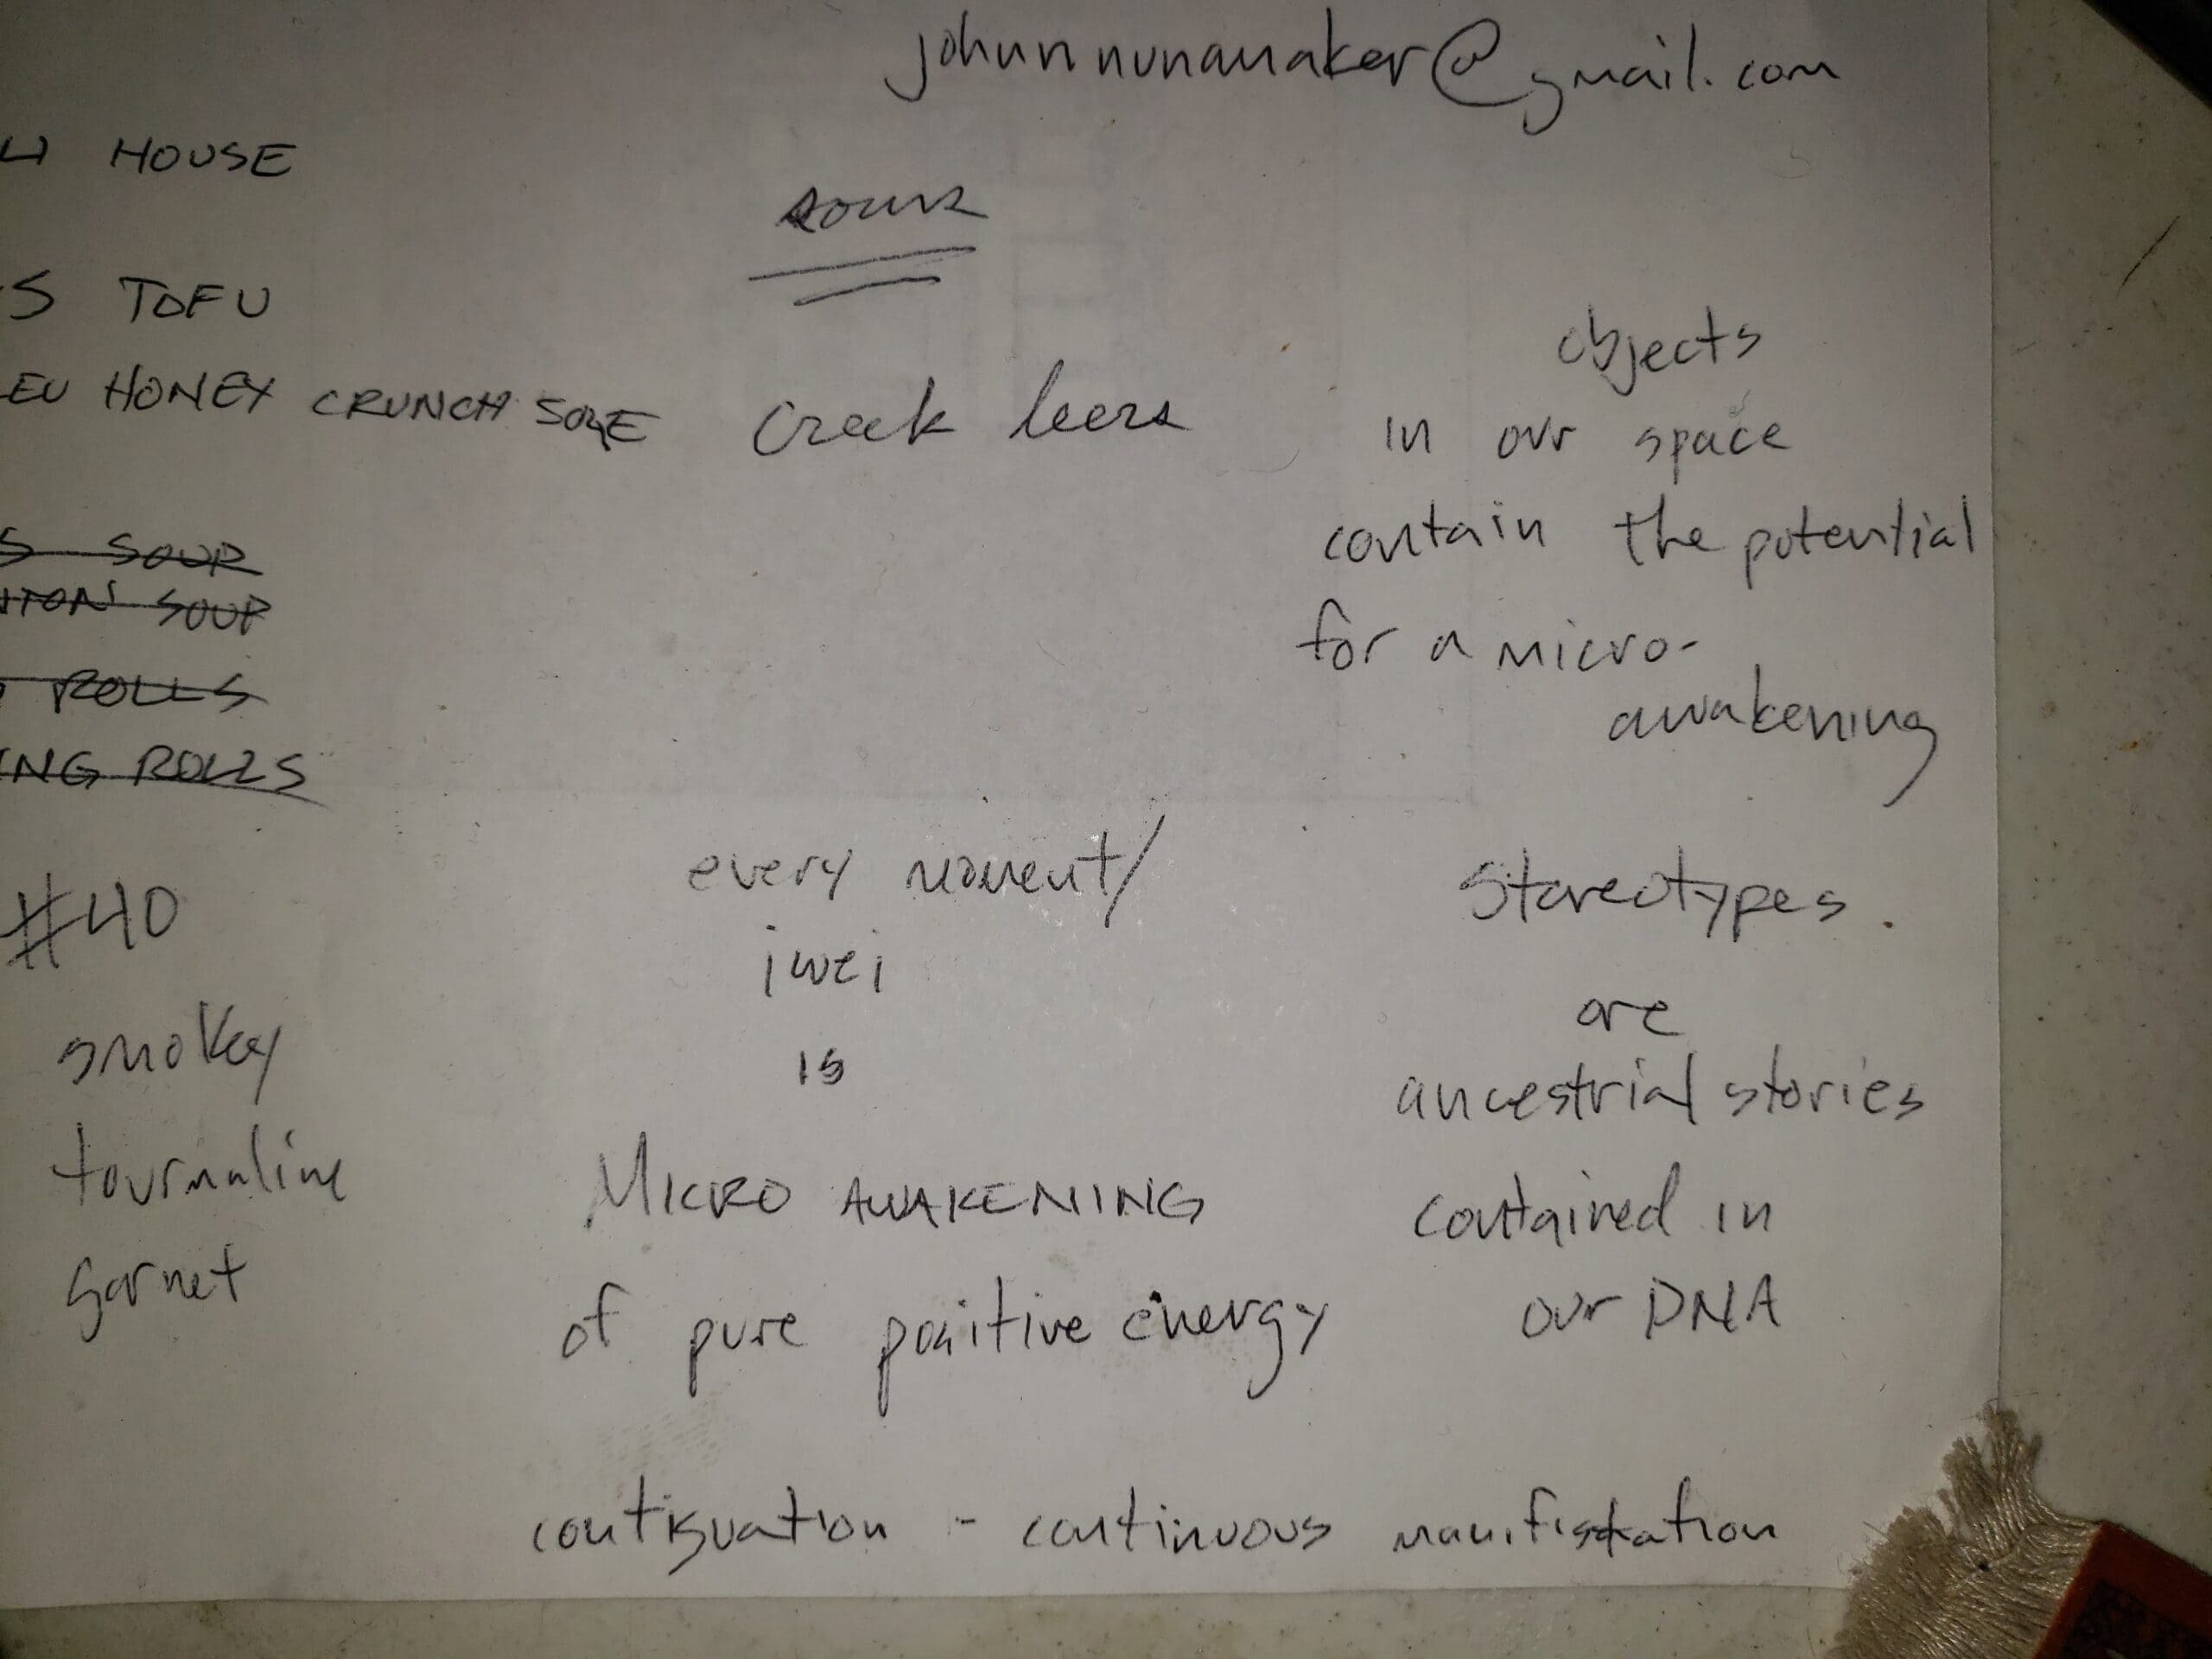 johnnnunamaker@gmail.com
HOUSE
S TOFU
HONEY CRUNCH
Creek
objects
in our space
contain the potential
for a micro-
awakening
S SOUP
SOUP
ROLLS
ING ROLLS
#40
smokey
tourmaline
garnet
every moment/
iwei
is
MICRO AWAKENING
of pure positive energy
Stereotypes
are
ancestrial stories
contained in
our DNA
contiguation - continuous manifistation